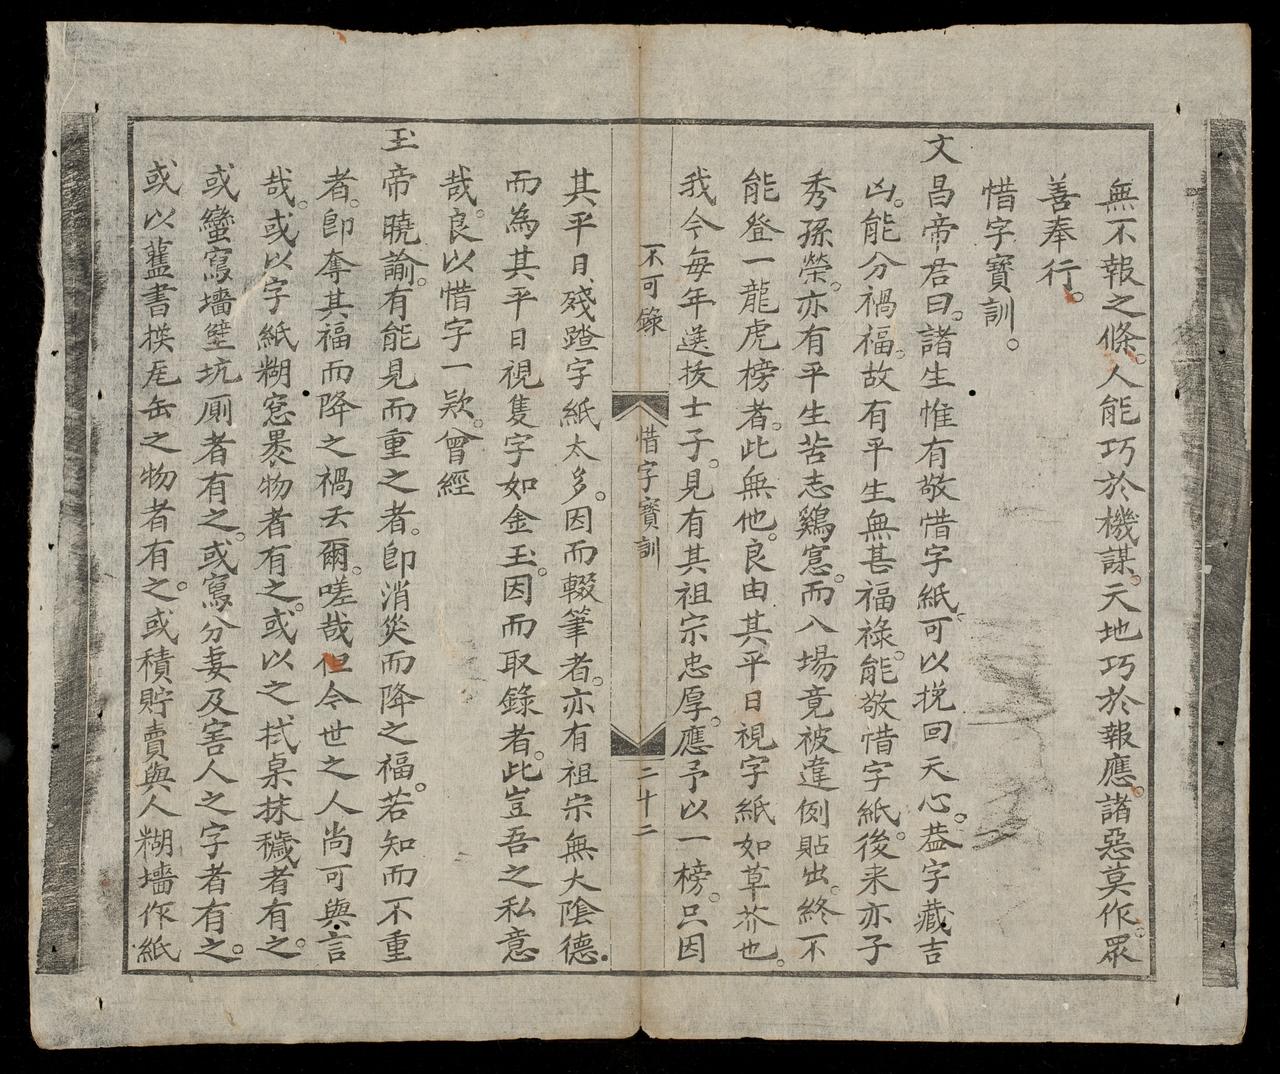 無不報之條。人能巧於機謀。天地巧於報應。諸惡莫作。眾
善奉行。
惜字寶訓。
文昌帝君曰。諸生惟有敬惜字紙。可以挽回天心。葢字藏吉
凶。能分禍福。故有平生無甚福祿。能敬惜字紙。後来亦子
秀孫榮。亦有平生苦志鷄窓。而入場竟被違例貼出。終不
能登一龍虎榜者。此無他。良由其平日視字紙如草芥也。
我今每年選拔士子。見有其祖宗忠厚。應予以一榜。只因
不可錄
惜字寶訓
二十二
其平日殘踏字紙太多。因而輟筆者。亦有祖宗無大陰德。
而為其平日視隻字如金玉。因而取錄者。此豈吾之私意
哉。良以惜字一欵。曾經
玉帝曉諭。有能見而重之者。卽消災而降之福。若知而不重
者。卽奪其福而降之禍云爾。嗟哉但今世之人尚可與言
哉。或以字紙糊窓裹物者有之。或以之拭桌抹穢者有之。
或蠻寫墻壁坑厠者有之。或寫分妻及害人之字者有之。
或以舊書換瓦缶之物者有之。或積貯賣與人糊墻作紙